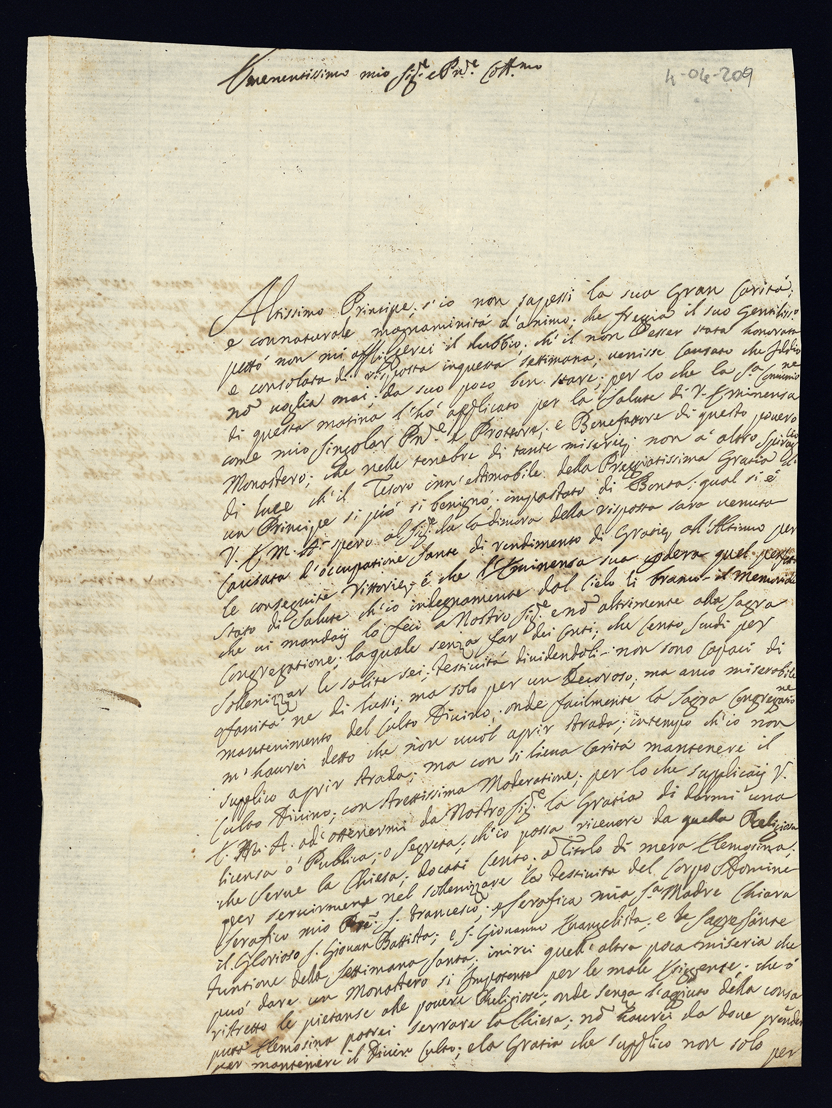 Emenentissimo mio Sig.re e Pñ.e Coll.mo
4-04-209
Altissimo Principe; s'io non sapessi la sua Gran Carità;
e connaturale magnaminità d'animo; che freggia il suo Gentiliss.o
petto non mi affligerei il dubbio; ch'il non esser stata honorata
e consolata di risposta inquesta settimana; venisse causato che Iddio
nõ voglia mai; da suo poco ben stare; per lo che la S.ta Comunione
di questa matina l'hò applicato per la Salute di V. Eminensa
come mio singolar Pñ.e e Prottore; e Benefattore di questo povero
Monastero; che nelle tenebre di tante miserie; non à altro spiraglio
di luce ch'il Tesoro inn'estimabile della Preggiatissima Gratia di
un Principe si pio; si benigno; impastato di Bontà; qual si è
V. E M. A. spero al Sig.re la la dimora della risposta sarà venuta
causata d'occupatione sante di rendimento di Gratie al Altissimo per
le conseguite Vittorie; è che l'Eminensa sua godera quel perfetto
stato di salute ch'io indegnamente dal Cielo li bramo il Memoriale
che vi manday lo feci a Nostro Sig.re e nõ altrimente alla Sagra
Congregatione; la quale senza far dei Conti; che cento scudi per
sollenizzar le solite sei; festività dividendoli non sono capaci di
vanità ne di lussi; ma solo per un Decoroso; ma anco miserabile
mantenimento del Culto Divino; onde facilmente la Sagra Congregatione
m'haurei detto che non vuol aprir strada; intempo ch'io non
supplico aprir strada; ma con si lieva Carità mantenere il
Culto Divino; con strettissima Moderatione; per lo che supplicay V.
E. M. A. ad'ottenermi da Nostro Sig.re la Gratia di darmi una
licensa ò Publica; o segreta; ch'io possa ricevere da quella Religiosa
che serve la Chiesa; docati Cento; à titolo di mera Elemosina;
per servirmene nel solenizzare la festività del Corpo Domine
Serafico mio Pñ.e S. Francesco; Serafica mia S.ta Madre Chiara
il Glorioso S. Giovan Battista; e S. Giovanno Evangelista; e le Sagre Sante
funtione della Settimana Santa; inirci quell'altra poca miseria che
può dare un Monastero si Impotente per le male Esigente; che à
ristretto le pietanse alle povere Religiose; onde senza l'aggiuto della consa
putà Elemosina potrei serrare la Chiesa; nõ haurei da dove prender
per mantenere il Divino Culto; e la Gratia che supplico non solo
per